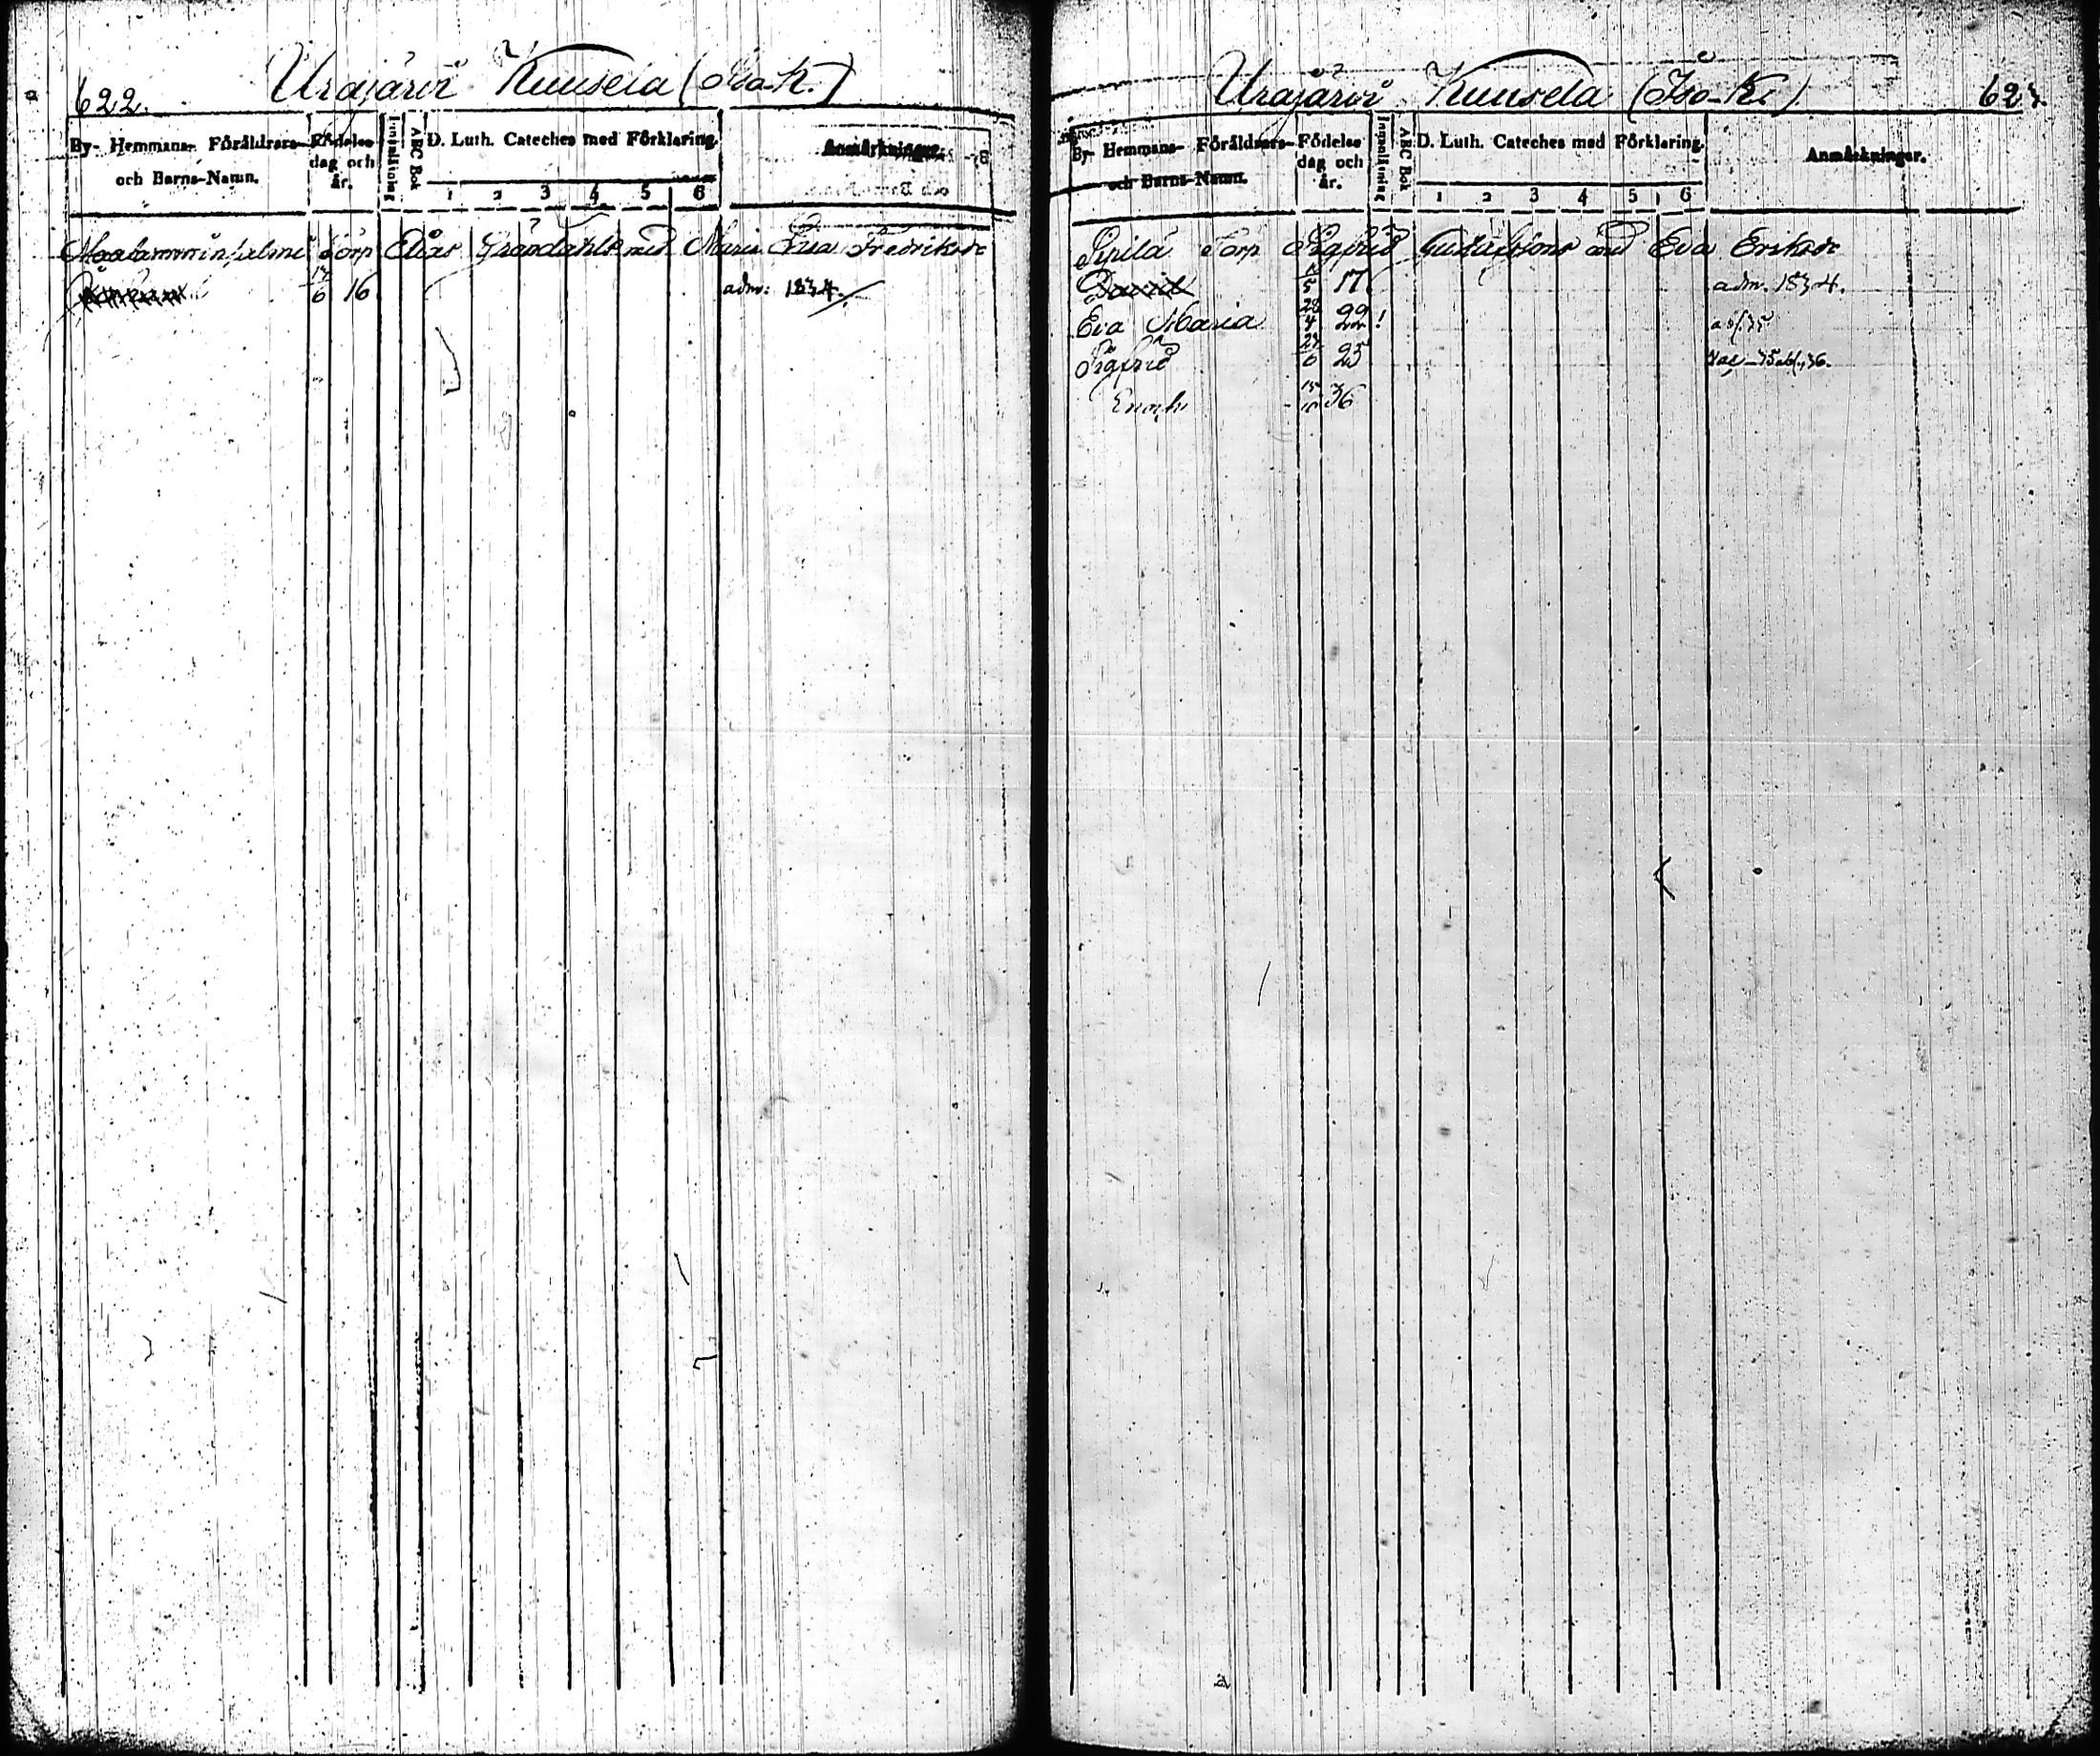 622. Urajärvi Kuusela (Iso-K.)
By- Hemmans- Föräldrars- och Barns-Namn. Födelse dag och år. Innanläsning ABC Bok D. Luth. Cateches med Förklaring. Anmärkningar.
1 2 3 4 5 6
Torp Elias Gröndahls med Maria Eva Fredriksdr
17/6 16 adm: 1834.
Urajärvi Kuusela (Iso-K.) 623.
By- Hemmans- Föräldrars- och Barns-Namn. Födelse dag och år. Innanläsning ABC Bok D. Luth. Cateches med Förklaring. Anmärkningar.
1 2 3 4 5 6
Torp Sigfrid Gustafssons med Eva Eriksdr
David 5 17 adm. 1834.
Eva Maria 28/4 22 !
Sigfrid 27/6 25
Enoch 15/10 36